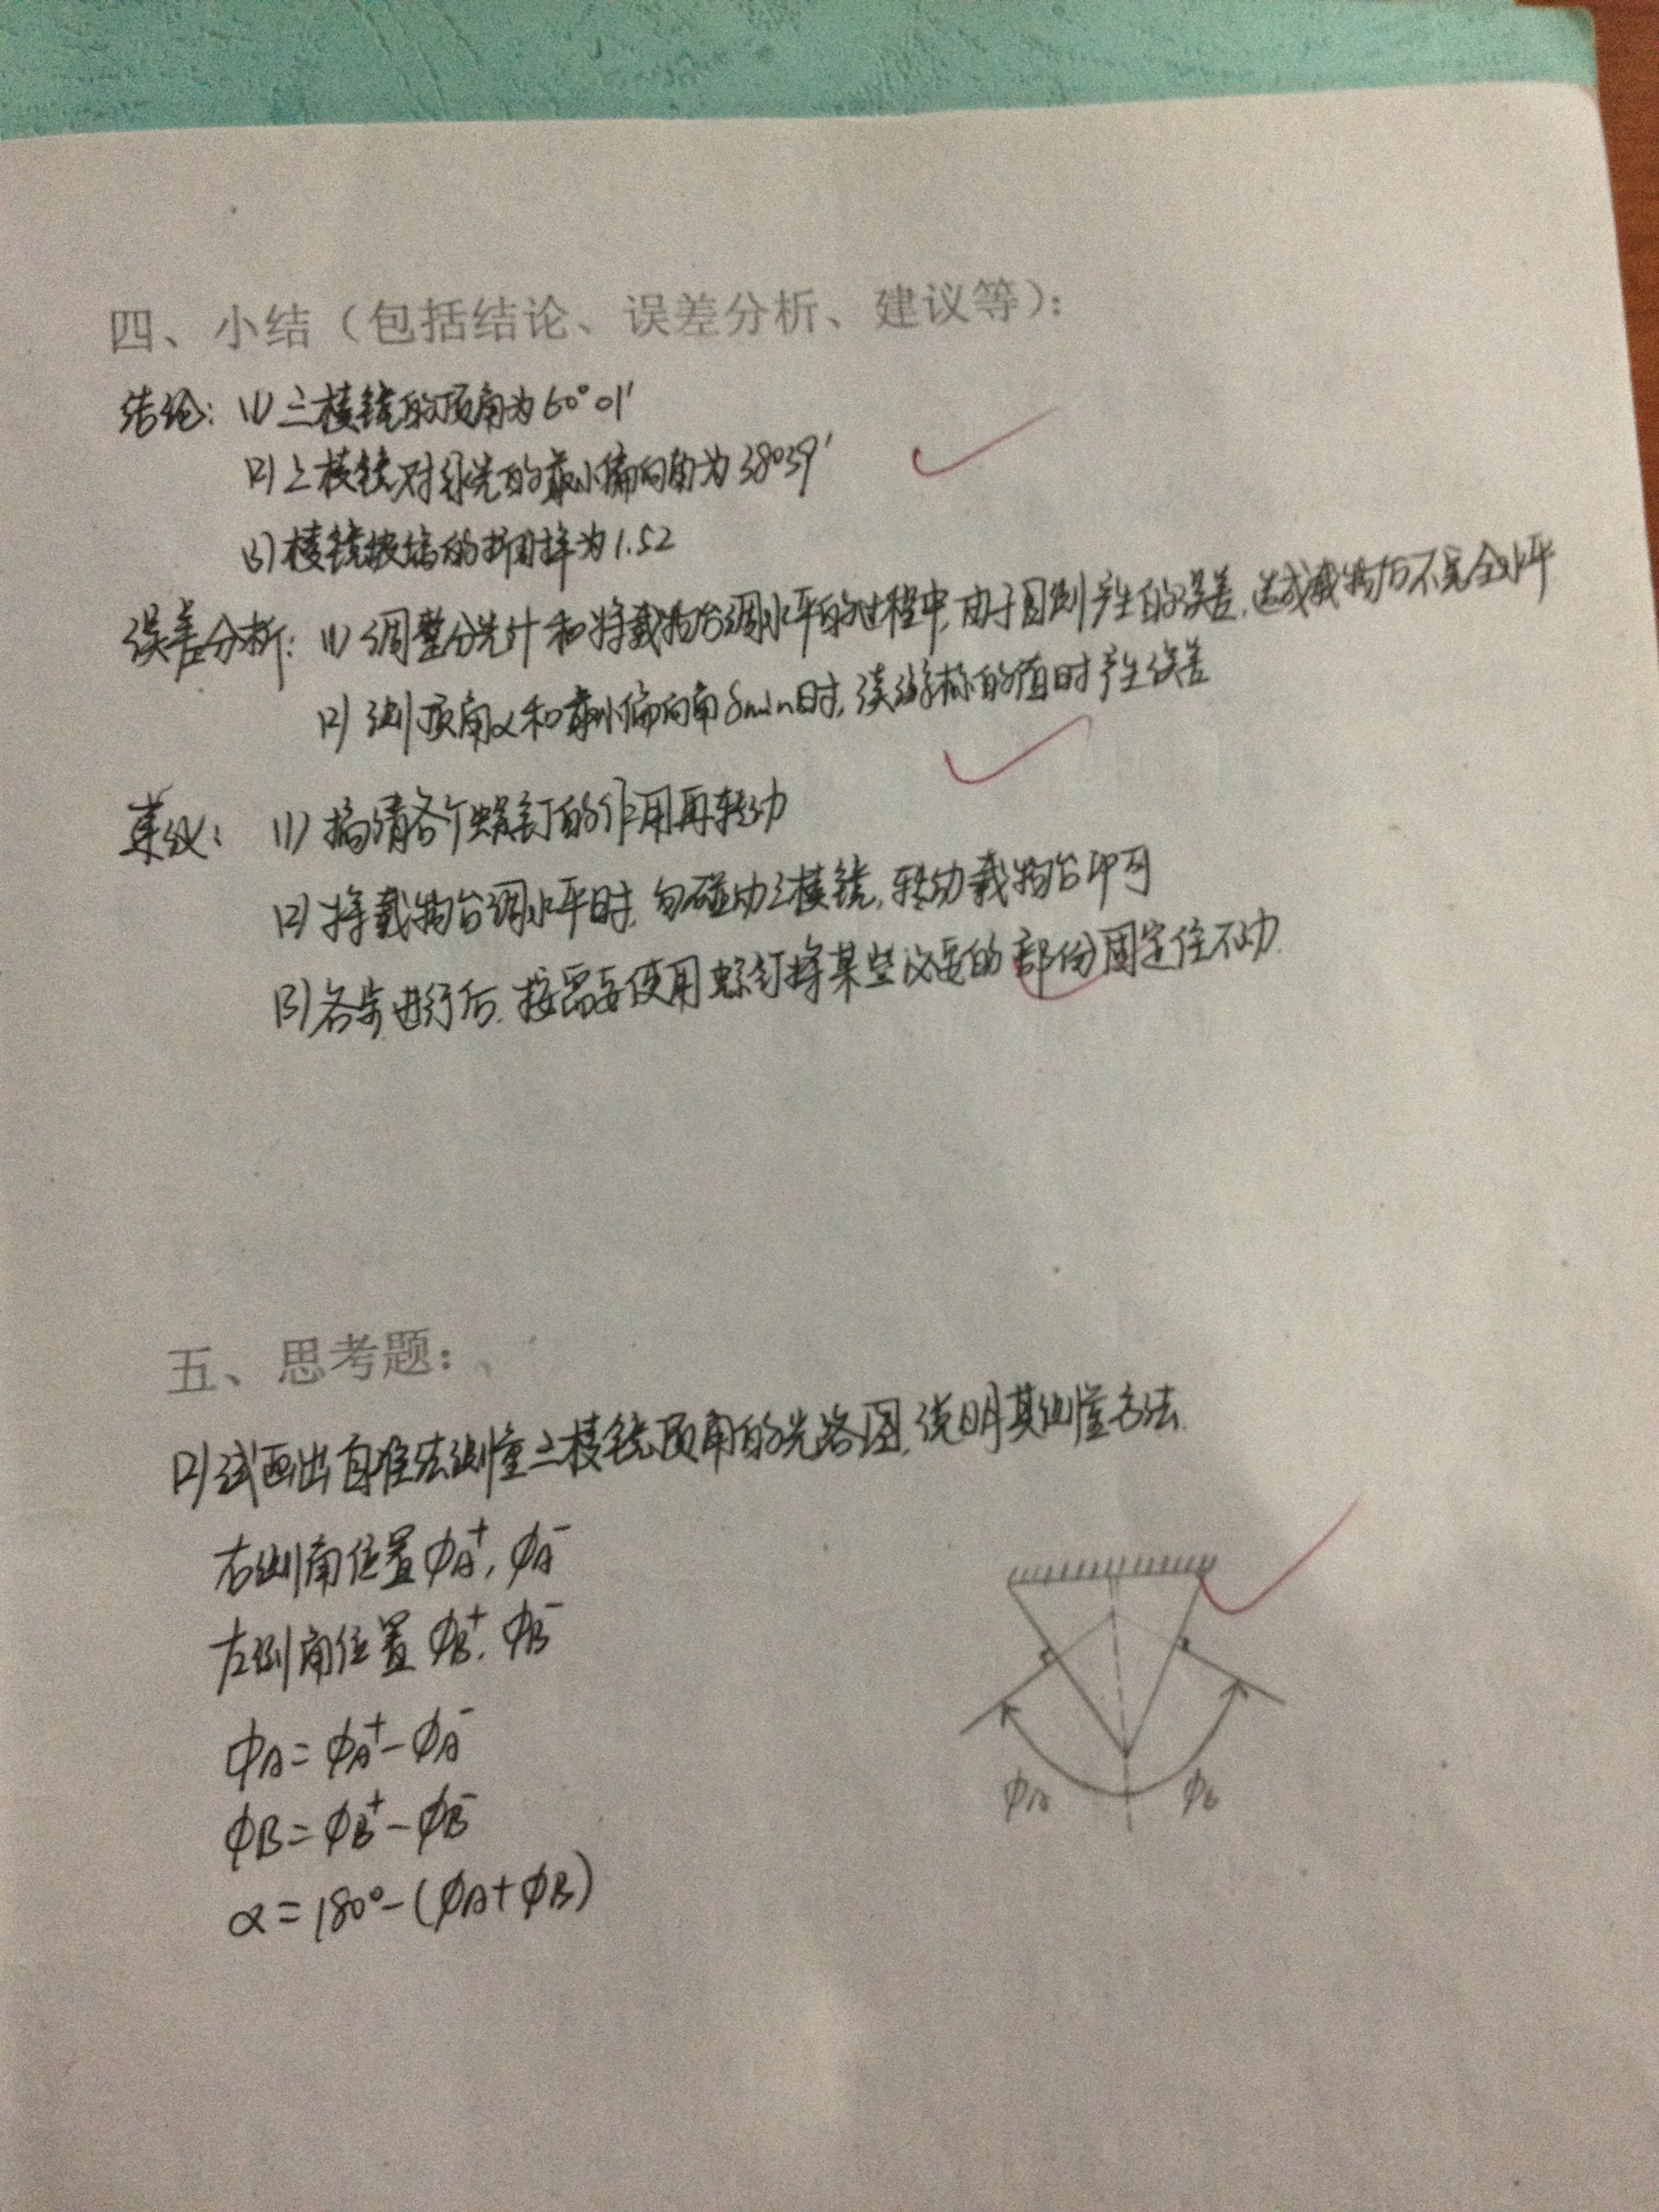 四、小结（包括结论、误差分析、建议等）：
结论：(1) 三棱镜的顶角为60°01′
(2) 三棱镜对绿光的最小偏向角为38°39′
(3) 棱镜玻璃的折射率为1.52
误差分析：(1) 调整分光计和将载物台调水平的过程中,由于目测产生的误差,造成载物台不完全水平
(2) 测顶角α和最小偏向角δmin时,读游标的值时产生误差
建议：(1) 搞清各个螺钉的作用再转动
(2) 将载物台调水平时,勿碰动三棱镜,转动载物台即可
(3) 各步进行后,按需要使用螺钉将某些必要的部份固定住不动.
五、思考题：
(2) 试画出自准法测量三棱镜顶角的光路图,说明其测量方法.
右侧角位置 ϕA⁺, ϕA⁻
左侧角位置 ϕB⁺, ϕB⁻
ϕA = ϕA⁺ - ϕA⁻
ϕB = ϕB⁺ - ϕB⁻
α = 180° - (ϕA + ϕB)
ϕA ϕB